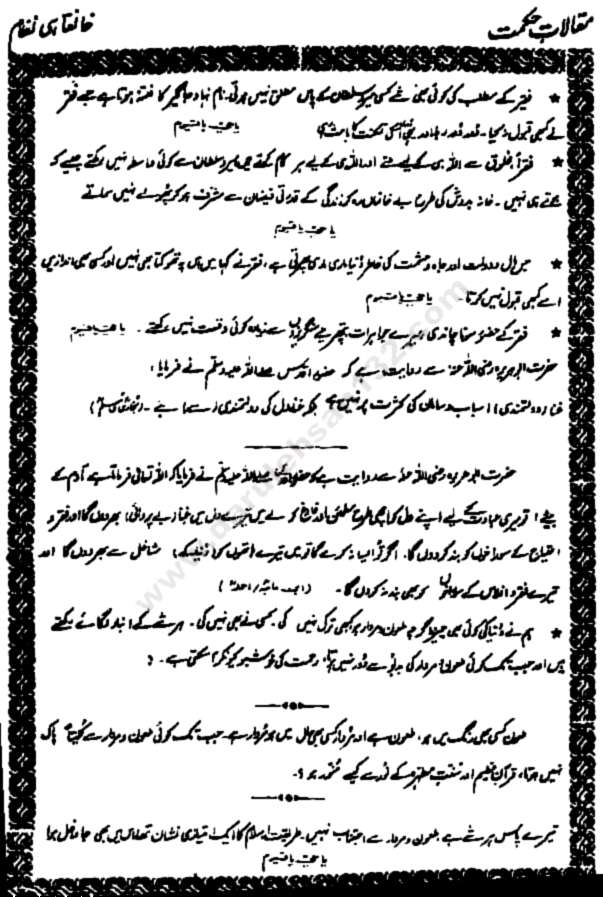 مقالاتِ حکمت
خانقاہی نظام
★ فقیر کے مطلب کی کوئی بھی شے کسی میر و سلطان کے ہاں مطلق نہیں ہوتی۔ نام نہاد جاگیر کا فتنہ ہوتا ہے جسے فقر
نے کبھی قبول نہ کیا۔
یا حی یا قیوم
★ فقرأ مخلوق سے اللہ ہی کے لیے ملتے اور اللہ ہی کے لیے ہر کام کرتے ہیں میر و سلطان سے کوئی واسطہ نہیں رکھتے جیسے کہ
جانتے ہی نہیں۔ خانہ بدوش کی طرح بے خانماں رہ کر زندگی کے قدرتی فیضان سے مشرف ہو کر پھولے نہیں سماتے
یا حی یا قیوم
★ مال و دولت اور جاہ و حشمت کی خاطر دُنیا ماری ماری پھرتی ہے، فقر نے کہا میں اس پہ تھوکتا بھی نہیں اور کسی بھی انداز میں
اسے کبھی قبول نہیں کرتا۔ یا حی یا قیوم
★ فقر کے حضور سونا چاندی ہیرے جواہرات پتھر سے زیادہ کوئی وقعت نہیں رکھتے۔ یا حی یا قیوم
حضرت ابوہریرہ رضی اللہ عنہ سے روایت ہے کہ حضور اقدس صلی اللہ علیہ وسلم نے فرمایا:
غنا (دولتمندی) اسباب و سامان کی کثرت پر نہیں ہے بلکہ غنا دل کی دولتمندی سے ہے۔ (بخاری و مسلم)
حضرت ابوہریرہ رضی اللہ عنہ سے روایت ہے کہ حضور اقدس صلی اللہ علیہ وسلم نے فرمایا کہ اللہ تعالیٰ فرماتا ہے آدم کے
بیٹے! تو میری عبادت کے لیے اپنے دل کو اچھی طرح مطمئن اور فارغ کر لے میں تیرے دل میں غنا (بے پروائی) بھر دوں گا اور فقر و
احتیاج کے سوراخوں کو بند کر دوں گا۔ اگر تو ایسا نہ کرے گا تو میں تیرے ہاتھوں کو (دنیا کے) مشاغل سے بھر دوں گا اور
تیرے فقر و افلاس کے سوراخوں کو بھی بند نہ کروں گا۔ (ابن ماجہ / احمد)
★ ہم نے دُنیا کی کوئی بھی چیز اگرچہ ملعون و مردار ہو کبھی ترک نہیں کی۔ کسی نے بھی نہیں کی۔ ہر شے کے انبار لگائے رکھتے
ہیں اور جب تک کوئی ملعون و مردار کی بدبو سے دُور نہیں ہوتا، رحمت کی خوشبو کیونکر آ سکتی ہے۔
ملعون کسی بھی رنگ میں ہو، ملعون ہے اور مُردار کسی بھی حال میں ہو مُردار ہے۔ جب تک کوئی ملعون و مردار سے کُلیتاً پاک
نہیں ہوتا، قرآنِ عظیم اور سنتِ مطہرہ کے نُور سے کیسے منور ہو؟۔
تیرے پاس ہر شے ہے، ملعون و مردار سے اجتناب نہیں۔ طریقتِ اسلام کا ایک امتیازی نشان تھا
یا حی یا قیوم
www.darulehsan132.com